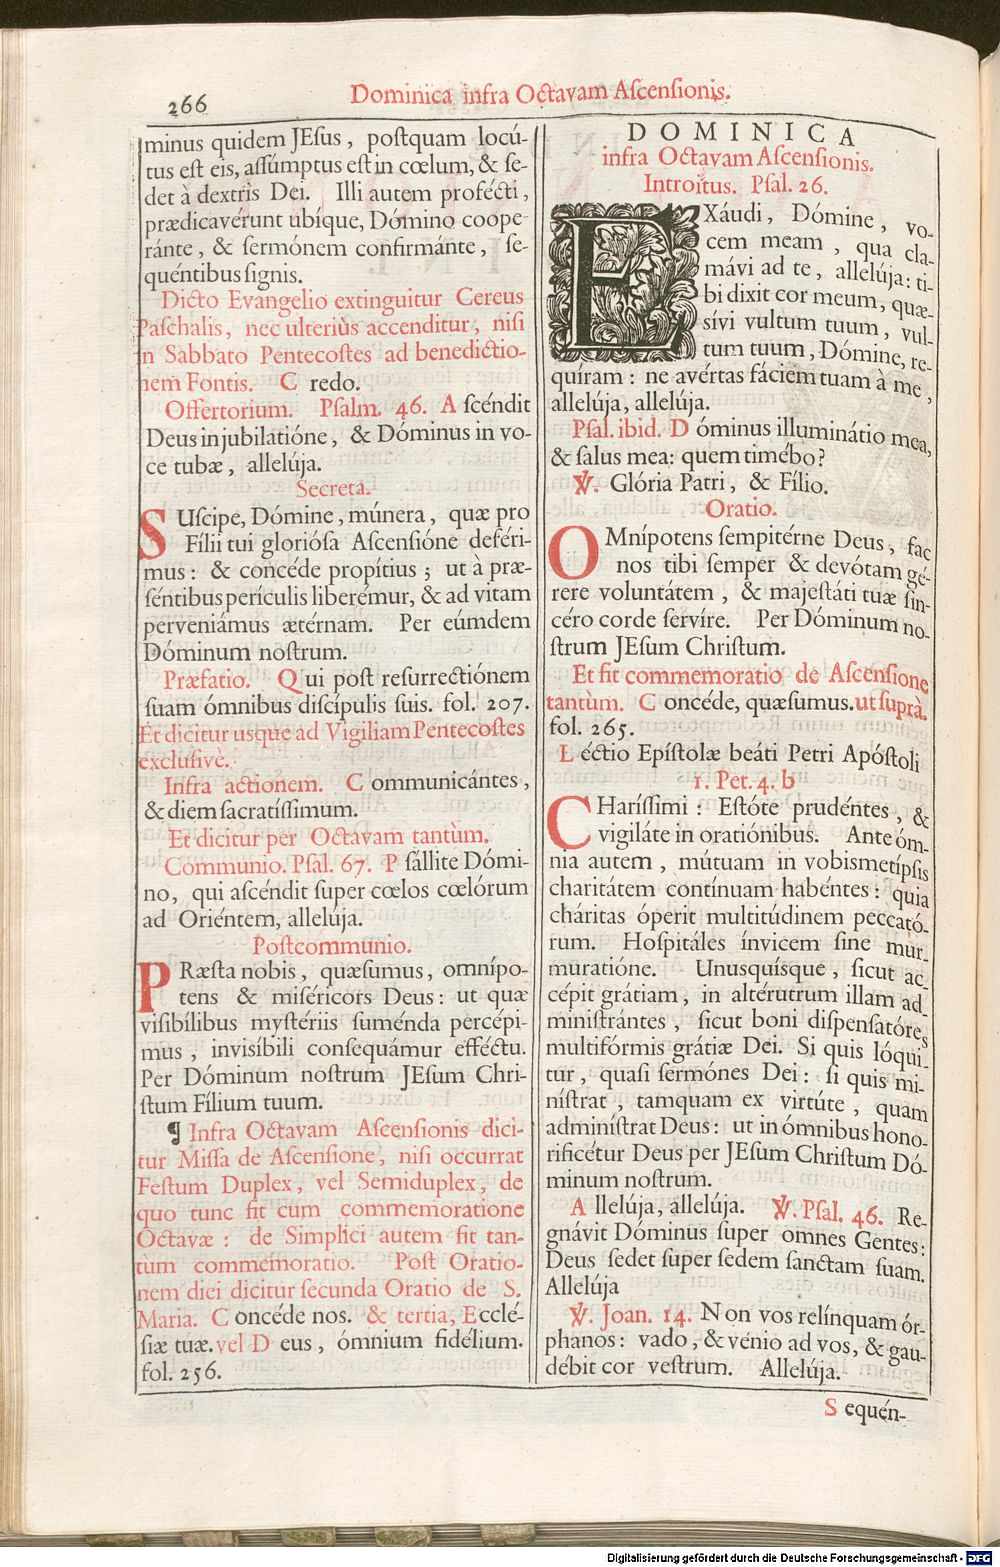 266
Dominica infra Octavam Ascensionis.
minus quidem JEsus, postquam locú-
tus est eis, assúmptus est in cœlum, & se-
det à dextris Dei. Illi autem profécti,
prædicavérunt ubíque, Domino coope-
ránte, & sermónem confirmánte, se-
quéntibus signis.
Dicto Evangelio extinguitur Cereus
Paschalis, nec ulteriùs accenditur, nisi
in Sabbato Pentecostes ad benedictio-
nem Fontis. C redo.
Offertorium. Psalm. 46. A scéndit
Deus in jubilatióne, & Dóminus in vo-
ce tubæ, allelúja.
Secreta.
SUscipe, Dómine, múnera, quæ pro
Fílii tui gloriósa Ascensióne deféri-
mus: & concéde propítius; ut à præ-
séntibus perículis liberémur, & ad vitam
perveniámus ætérnam. Per eúmdem
Dóminum nostrum.
Præfatio. Q ui post resurrectiónem
suam ómnibus discípulis suis. fol. 207.
Et dicitur usque ad Vigiliam Pentecostes
exclusivè.
Infra actionem. C ommunicántes,
& diem sacratíssimum.
Et dicitur per Octavam tantùm.
Communio. Psal. 67. P sállite Dómi-
no, qui ascéndit super cœlos cœlórum
ad Oriéntem, allelúja.
Postcommunio.
PRæsta nobis, quæsumus, omnípo-
tens & miséricors Deus: ut quæ
visibílibus mystériis suménda percépi-
mus, invisíbili consequámur efféctu.
Per Dóminum nostrum JEsum Chri-
stum Fílium tuum.
¶ Infra Octavam Ascensionis dici-
tur Missa de Ascensione, nisi occurrat
Festum Duplex, vel Semiduplex, de
quo tunc fit cum commemoratione
Octavæ: de Simplici autem fit tan-
tùm commemoratio. Post Oratio-
nem diei dicitur secunda Oratio de S.
Maria. C oncéde nos. & tertia, Ecclé-
siæ tuæ. vel D eus, ómnium fidélium.
fol. 256.
DOMINICA
infra Octavam Ascensionis.
Introitus. Psal. 26.
EXáudi, Dómine, vo-
cem meam, qua cla-
mávi ad te, allelúja: ti-
bi dixit cor meum, quæ-
sívi vultum tuum, vul-
tum tuum, Dómine, re-
quíram: ne avértas fáciem tuam à me,
allelúja, allelúja.
Psal. ibid. D óminus illuminátio mea,
& salus mea: quem timébo?
℣. Glória Patri, & Fílio.
Oratio.
OMnípotens sempitérne Deus, fac
nos tibi semper & devótam gé-
rere voluntátem, & majestáti tuæ sin-
céro corde servíre. Per Dóminum no-
strum JEsum Christum.
Et fit commemoratio de Ascensione
tantùm. C oncéde, quæsumus. ut suprà.
fol. 265.
L éctio Epístolæ beáti Petri Apóstoli
1. Pet. 4. b
CHaríssimi: Estóte prudéntes, &
vigiláte in oratiónibus. Ante óm-
nia autem, mútuam in vobismetípsis
charitátem contínuam habéntes: quia
cháritas óperit multitúdinem peccató-
rum. Hospitáles ínvicem sine mur-
muratióne. Unusquísque, sicut ac-
cépit grátiam, in altérutrum illam ad-
ministrántes, sicut boni dispensatóres
multifórmis grátiæ Dei. Si quis lóqui-
tur, quasi sermónes Dei: si quis mi-
nístrat, tamquam ex virtúte, quam
adminístrat Deus: ut in ómnibus hono-
rificétur Deus per JEsum Christum Dó-
minum nostrum.
A llelúja, allelúja. ℣. Psal. 46. Re-
gnávit Dóminus super omnes Gentes:
Deus sedet super sedem sanctam suam.
Allelúja
℣. Joan. 14. Non vos relínquam ór-
phanos: vado, & vénio ad vos, & gau-
débit cor vestrum. Allelúja.
S equén-
Digitalisierung gefördert durch die Deutsche Forschungsgemeinschaft - DFG